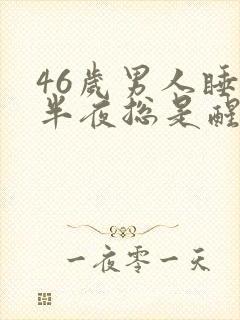 46岁男人睡
半夜总是醒
一夜零一天